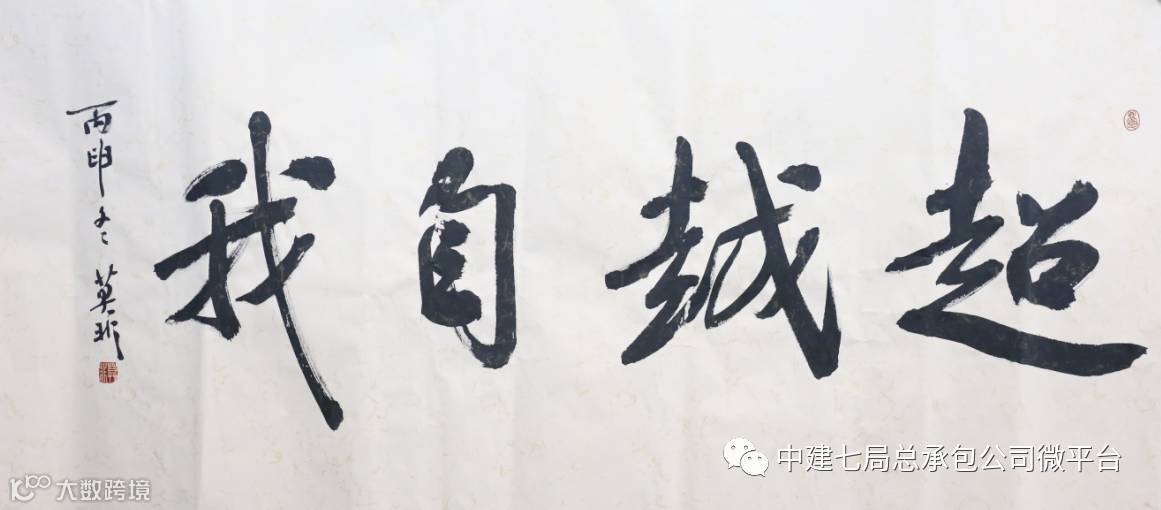 超越自我
丙申冬 莫彬
中建七局总承包公司微平台
大数跨境